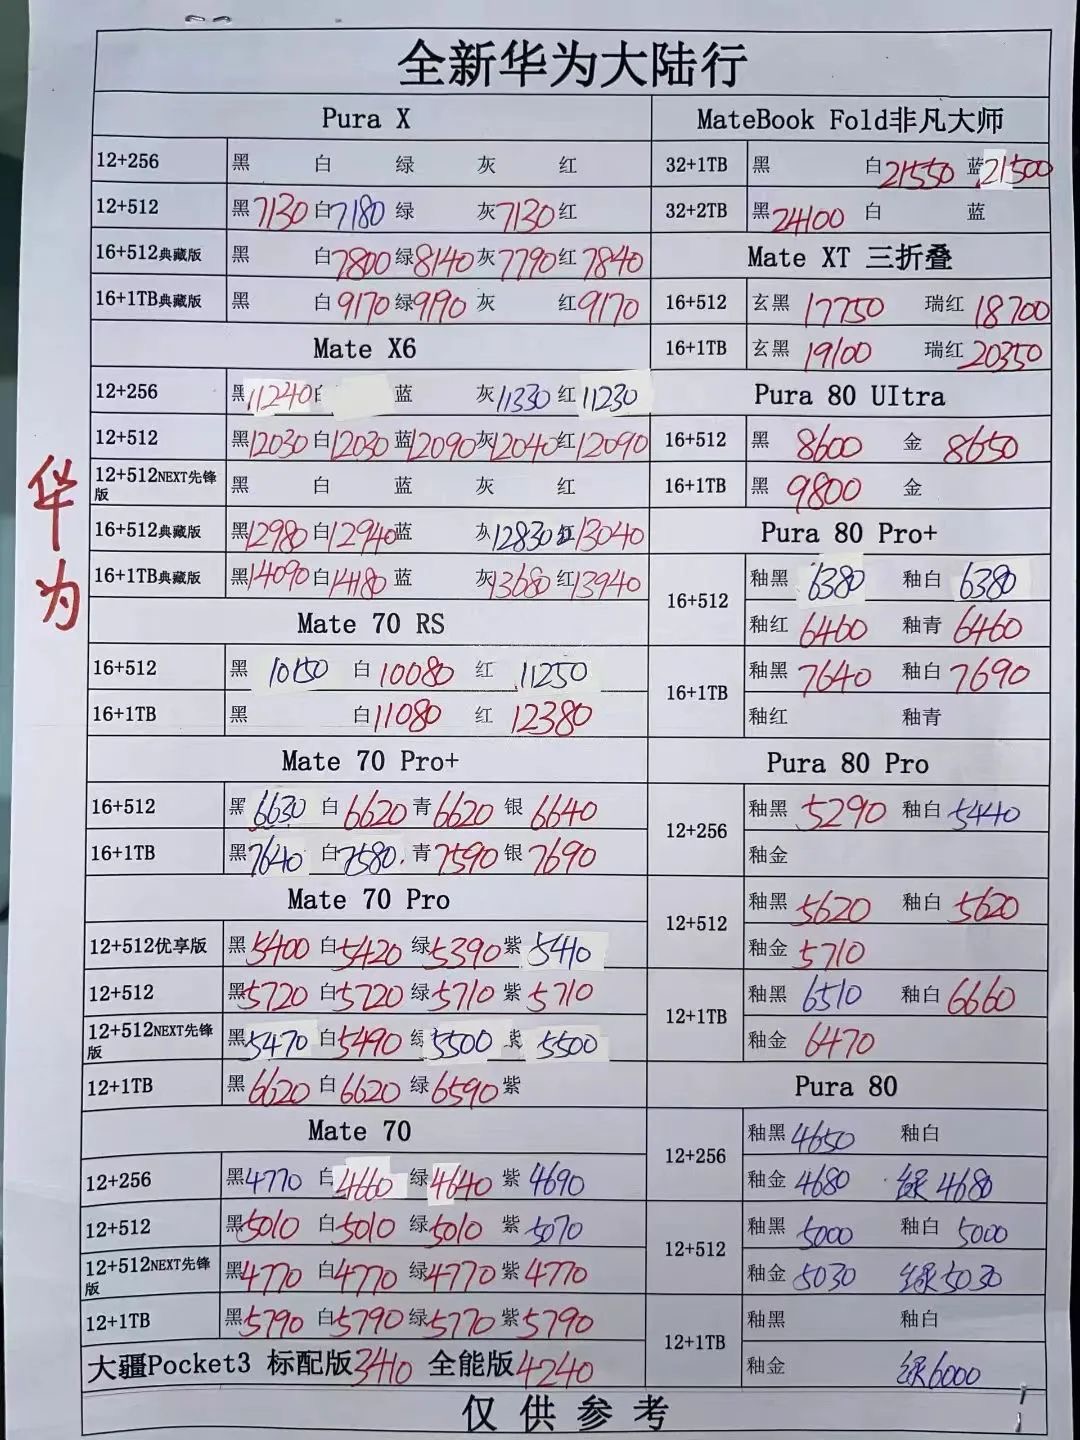 全新华为大陆行
Pura X
12+256 黑 白 绿 灰 红
12+512 黑7130 白7180 绿 灰7130 红
16+512典藏版 黑 白7800 绿8140 灰7790 红7840
16+1TB典藏版 黑 白9170 绿9190 灰 红9170
Mate X6
12+256 黑11240 白 蓝 灰11330 红11230
12+512 黑12030 白12030 蓝12090 灰12040 红12090
12+512NEXT先锋版 黑 白 蓝 灰 红
16+512典藏版 黑12980 白12940 蓝 灰12830 红13040
16+1TB典藏版 黑14090 白14180 蓝 灰13680 红13940
Mate 70 RS
16+512 黑 10150 白10080 红 11250
16+1TB 黑 白11080 红 12380
Mate 70 Pro+
16+512 黑 6630 白6620 青6620 银 6640
16+1TB 黑7640 白7580 青7590 银7690
Mate 70 Pro
12+512优享版 黑5400 白5420 绿5390 紫5410
12+512 黑5720 白5720 绿5710 紫5710
12+512NEXT先锋版 黑5470 白5490 绿5500 紫5500
12+1TB 黑6620 白6620 绿6590 紫
Mate 70
12+256 黑4770 白4660 绿4640 紫4690
12+512 黑5010 白5010 绿5010 紫5070
12+512NEXT先锋版 黑4770 白4770 绿4770 紫4770
12+1TB 黑5790 白5790 绿5770 紫5790
大疆Pocket3 标配版3410 全能版4240
MateBook Fold非凡大师
32+1TB 黑 白21550 蓝21500
32+2TB 黑24100 白 蓝
Mate XT 三折叠
16+512 玄黑 17750 瑞红 18700
16+1TB 玄黑 19100 瑞红 20350
Pura 80 UItra
16+512 黑 8600 金 8650
16+1TB 黑 9800 金
Pura 80 Pro+
16+512 釉黑 6380 釉白 6380
釉红 6460 釉青 6460
16+1TB 釉黑 7640 釉白 7690
釉红 釉青
Pura 80 Pro
12+256 釉黑 5290 釉白5440
釉金
12+512 釉黑 5620 釉白 5620
釉金 5710
12+1TB 釉黑 6510 釉白6660
釉金 6470
Pura 80
12+256 釉黑4650 釉白
釉金 4680 绿 4680
12+512 釉黑 5000 釉白 5000
釉金 5030 绿5030
12+1TB 釉黑 釉白
釉金 绿6000
仅供参考
华为